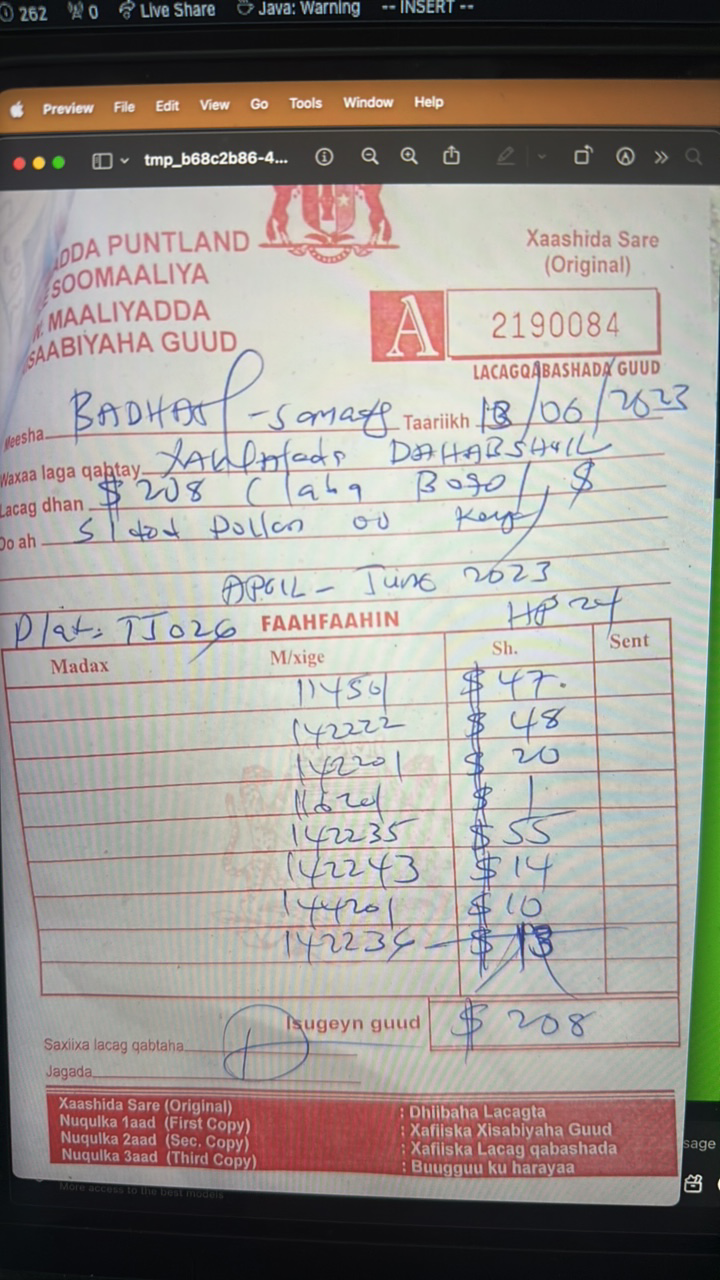 262 0 Live Share Java: Warning -- INSERT --
Preview File Edit View Go Tools Window Help
tmp_b68c2b86-4...
ADDA PUNTLAND
SOOMAALIYA
MAALIYADDA
SAABIYAHA GUUD
Xaashida Sare
(Original)
A 2190084
LACAGQABASHADA GUUD
Meesha Taariikh 13/06/2023
Waxaa laga qabtay DAHABSHIIL
Lacag dhan $ 208
Oo ah
APRIL - June 2023
Plat: TJ026 FAAHFAAHIN HP 24
Madax M/xige Sh. Sent
11451 $ 47.
142222 $ 48
142201 $ 20
11620 $ 1
142235 $ 55
142243 $ 14
144201 $ 10
142236 $ 13
Isugeyn guud $ 208
Saxiixa lacag qabtaha
Jagada
Xaashida Sare (Original) : Dhiibaha Lacagta
Nuqulka 1aad (First Copy) : Xafiiska Xisabiyaha Guud
Nuqulka 2aad (Sec. Copy) : Xafiiska Lacag qabashada
Nuqulka 3aad (Third Copy) : Buugguu ku harayaa
sage
More access to the best models